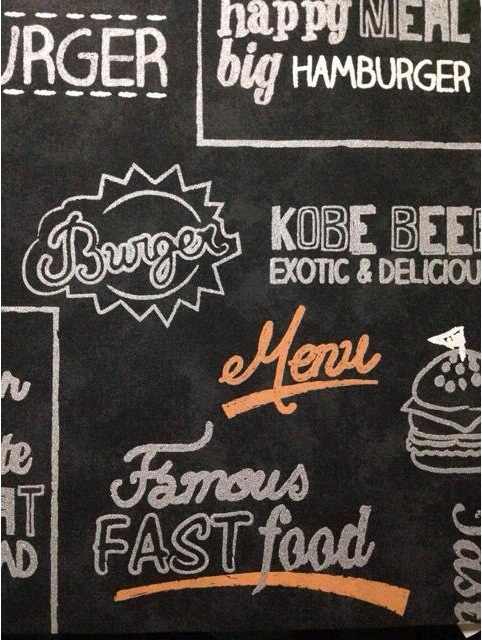 URGER
happy MEAL
big HAMBURGER
Burger
KOBE BEEF
EXOTIC & DELICIOU
Menu
Famous
FAST food